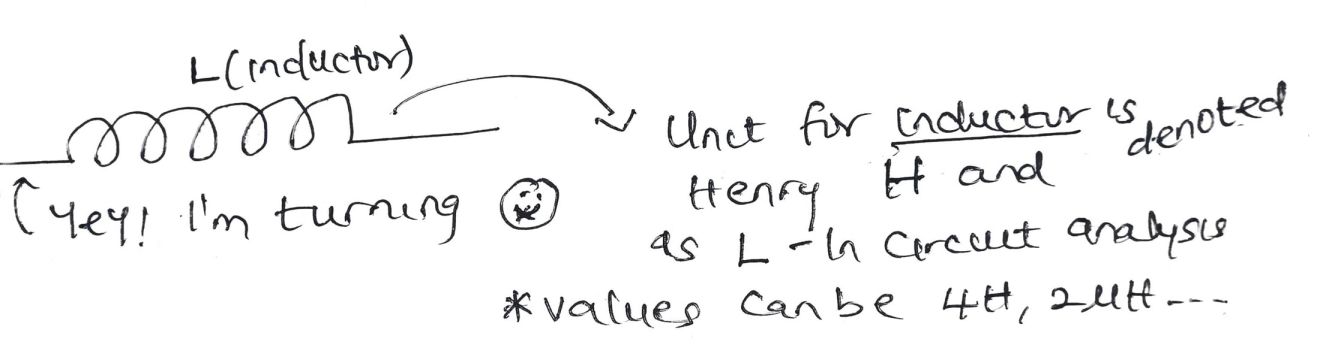 L(inductor)
Yey! I'm turning
Unit for inductor is denoted
Henry H and
as L - In circuit analysis
*values can be 4H, 2μH---